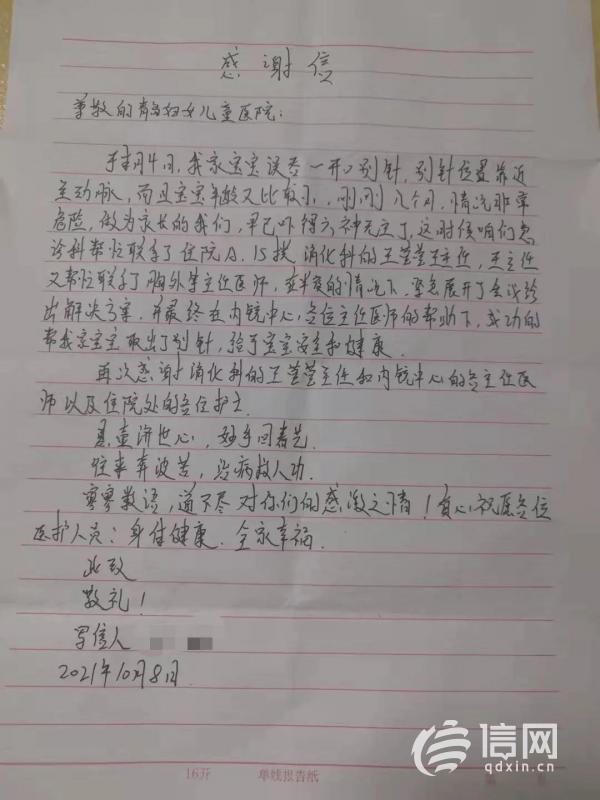 感谢信
尊敬的青岛妇女儿童医院：
于10月4日，我家宝宝误吞一开口别针，别针位置靠近
主动脉，而且宝宝年龄又比较小，刚刚八个月，情况非常
危险，做为家长的我们，早已吓得六神无主了，这时候咱们急
诊科帮忙联系了住院A.15楼，消化科的王莹莹主任，王主任
又帮忙联系了胸外等主任医师，在半夜的情况下，紧急展开了会议给
出解决方案，并最终在内镜中心，各位主任医师的帮助下，成功的
帮我家宝宝取出了别针，给了宝宝安全和健康．
再次感谢消化科的王莹莹主任和内镜中心的各主任医
师以及住院处的各位护士．
悬壶济世心，妙手回春先．
往来奔波苦，治病救人功．
寥寥数语，道不尽对你们的感激之情！衷心祝愿各位
医护人员：身体健康．全家幸福．
此致
敬礼！
写信人
2021年10月8日
16开 单线报告纸
信网
qdxin.cn